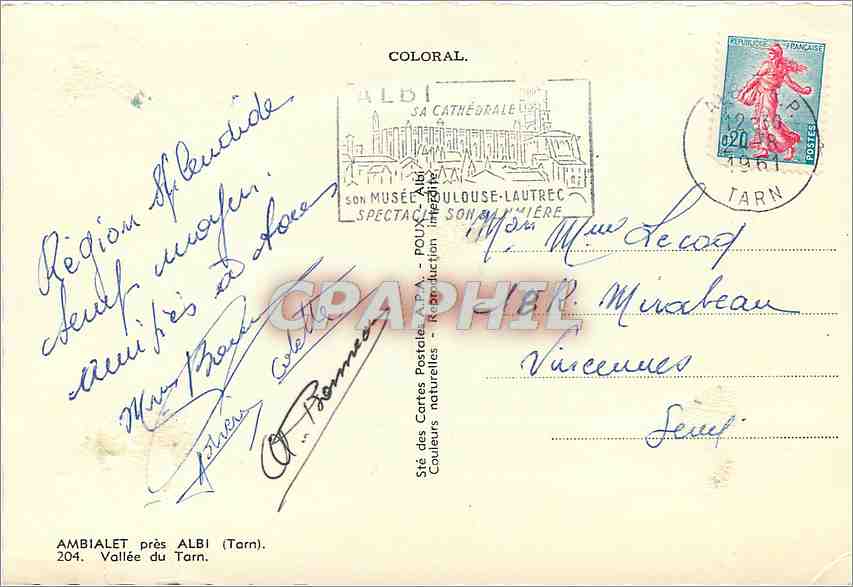 COLORAL.
ALBI
SA CATHÉDRALE
SON MUSÉE TOULOUSE-LAUTREC
SPECTACLE SON & LUMIÈRE
REPUBLIQUE FRANÇAISE
0,20
POSTES
12H30
1961
TARN
Région splendide
temps moyen.
amitiés à tous
Mme
Colette
Bonneau
Sté des Cartes Postales A.P.A. - POUX, Albi
Couleurs naturelles - Reproduction interdite
Mon Mme Lecoq
18 R. Mirabeau
Vincennes
Seine
CPAPHIL
AMBIALET près ALBI (Tarn).
204. Vallée du Tarn.